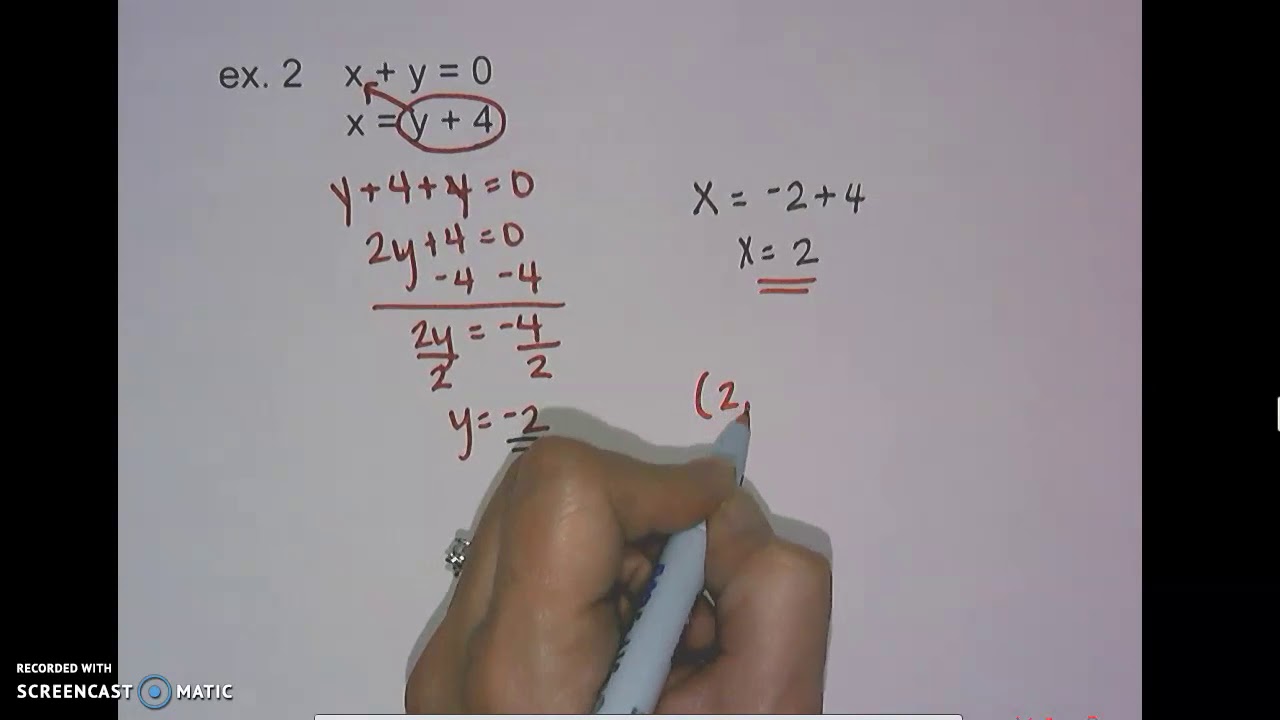 ex. 2 x + y = 0
x = y + 4
y + 4 + y = 0
2y + 4 = 0
-4 -4
2y = -4
2 2
y = -2
x = -2 + 4
x = 2
(2,
RECORDED WITH
SCREENCAST MATIC